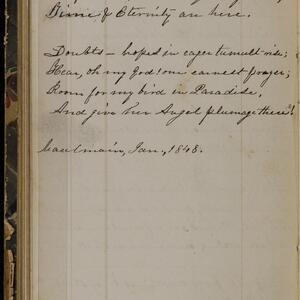 Time & Eternity are here.
Doubts – hopes in eager tumult rise;
Hear, oh my God! one earnest prayer;
Room for my bird in Paradise,
And give her Angel plumage there!
Jan., 1848.